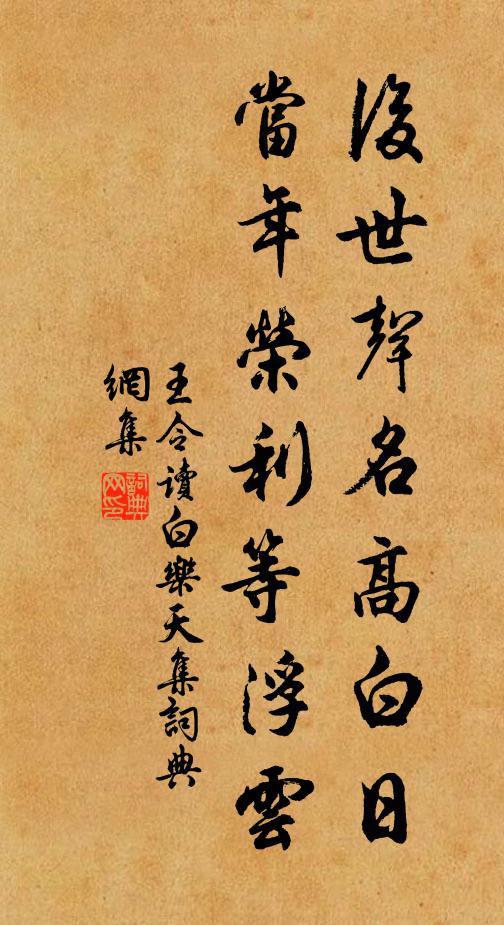 後世聲名高白日
當年榮利等浮雲
王令讀白樂天集詞典
網集
詞典
网印